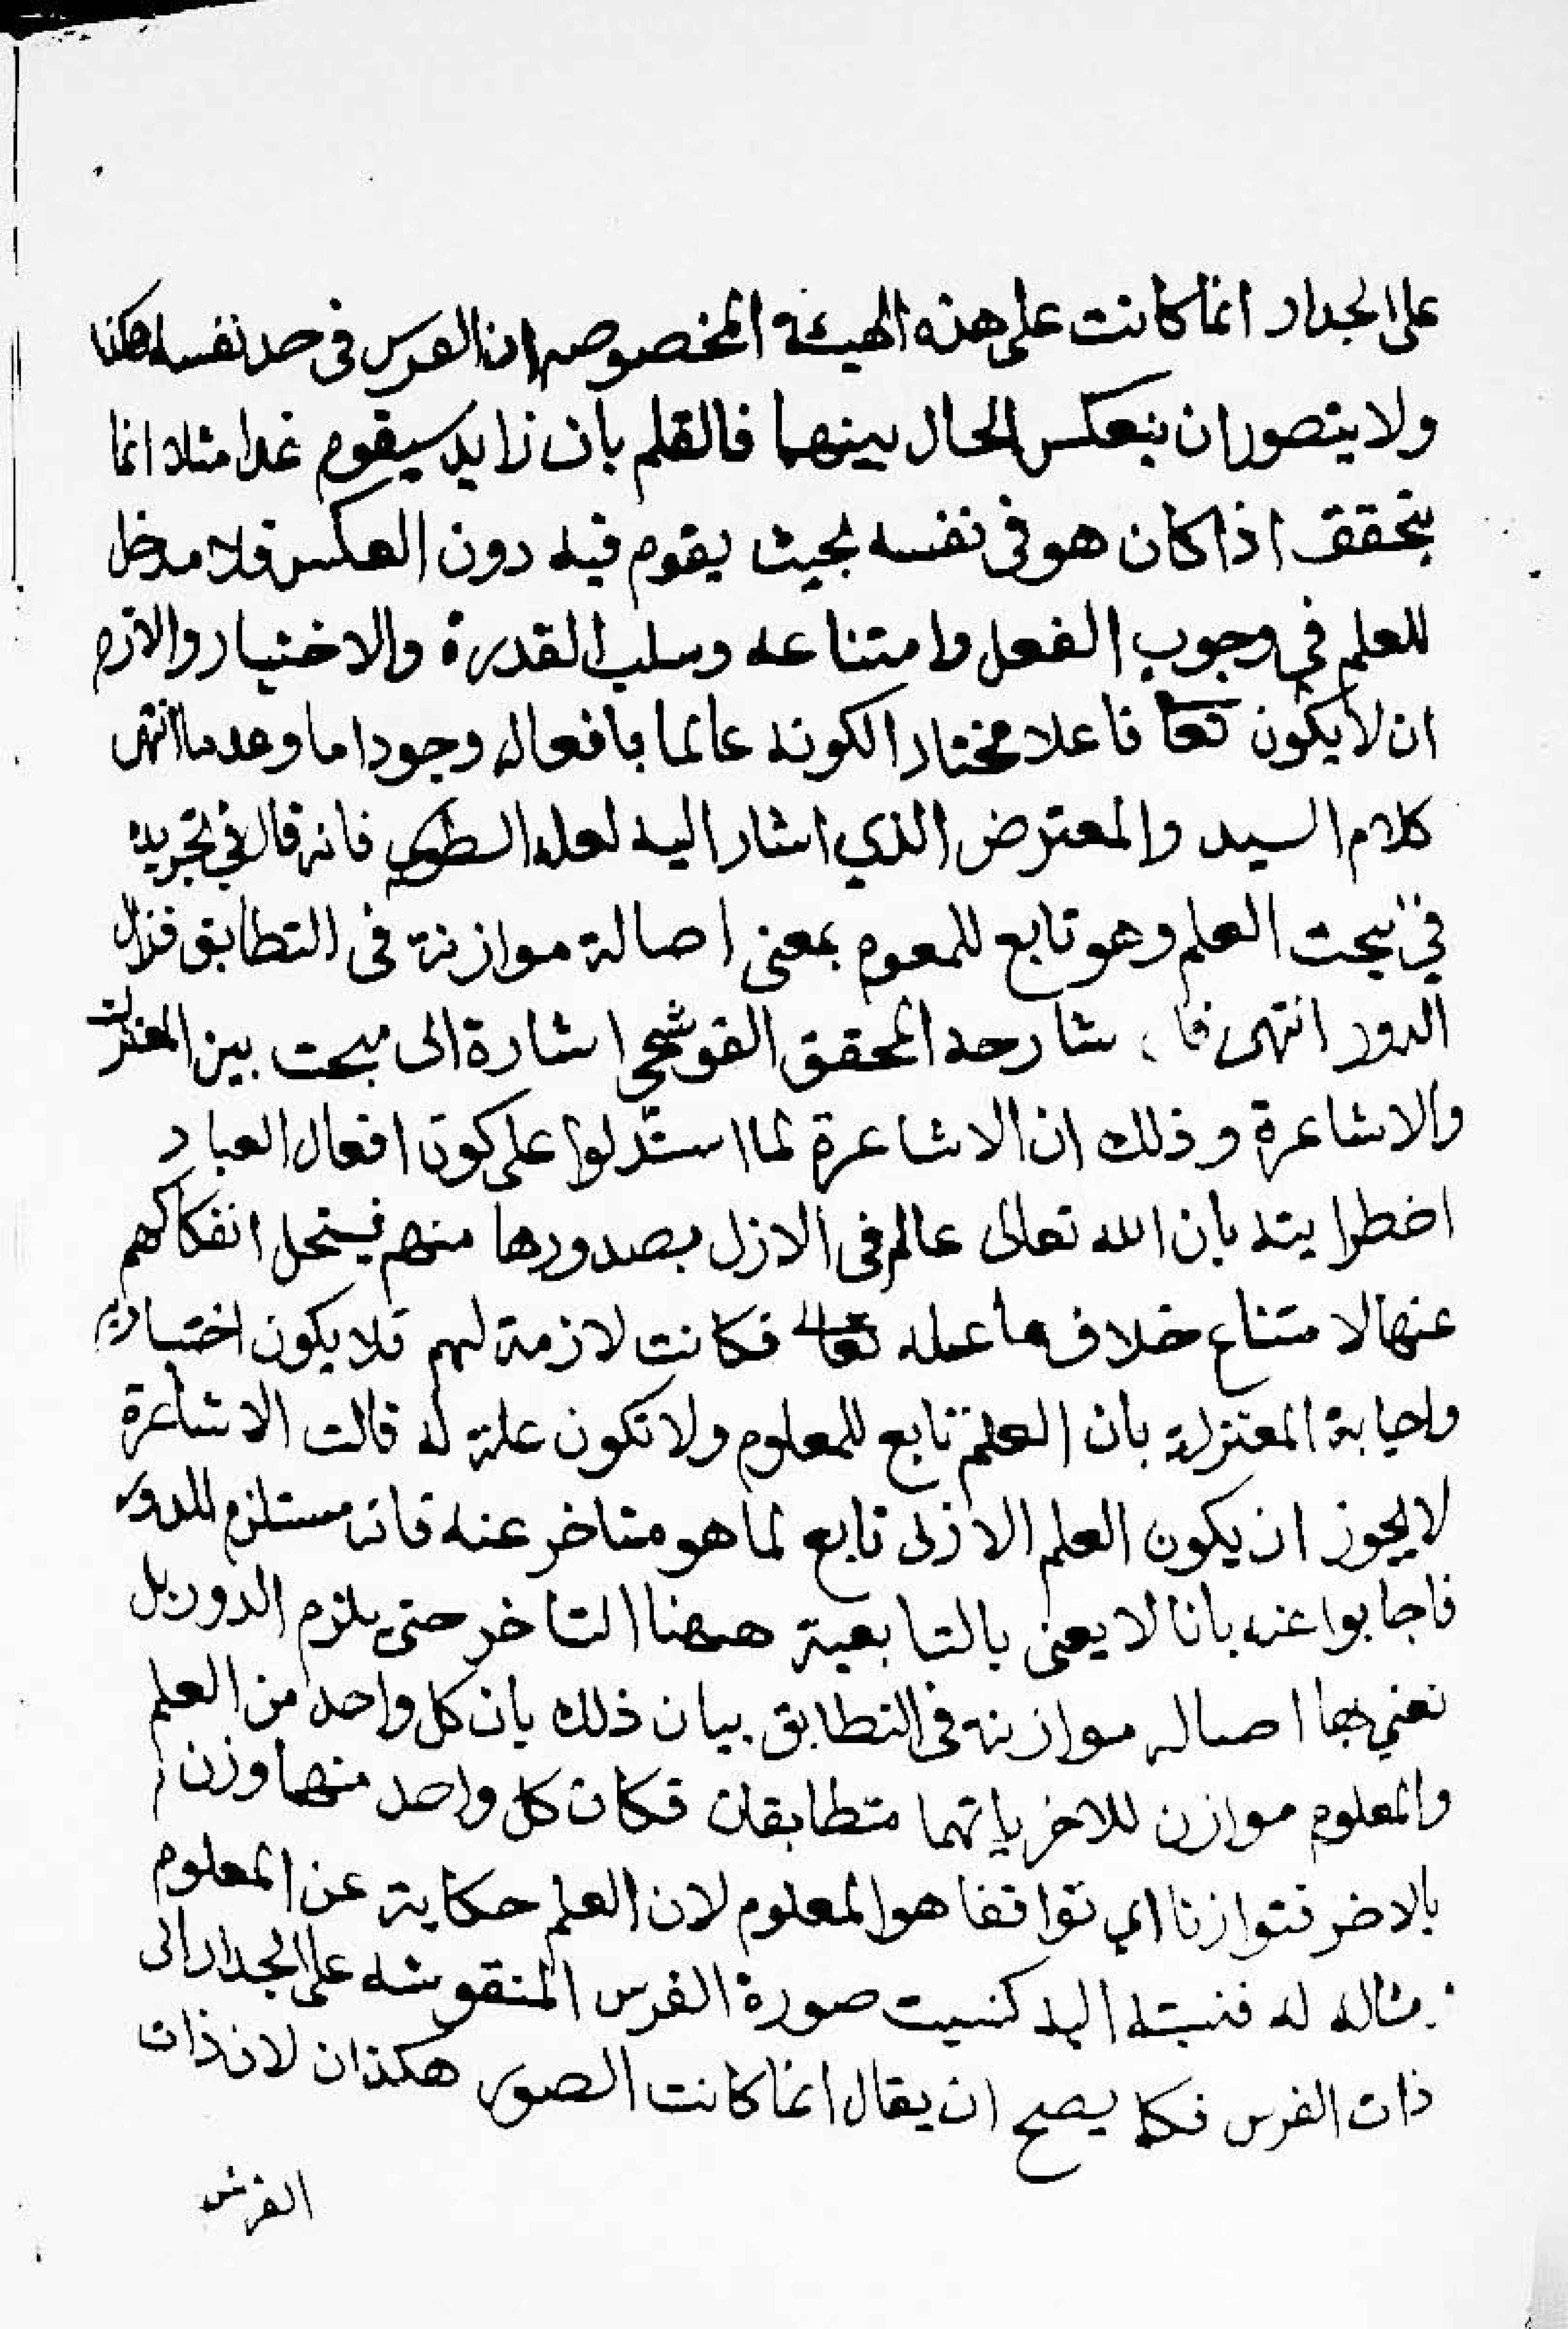 على الجدار انما كانت على هذه الهيئة المخصوصه ان الفرس فى حد نفسه هكذا
ولا يتصور ان ينعكس الحال بينهما فالقلم بان زايد سيقوم غدا مثلا انما
يتحقق اذا كان هو فى نفسه بحيث يقوم فيه دون العكس فلا مدخل
للعلم فى وجوب الفعل وامتناعه وسلب القدرة والاختيار والالزم
ان لا يكون تعا فاعلا مختارا لكونه عالما بافعاله وجودا ما وعدما انتهى
كلام السيد والمعترض الذي اشار اليه لعله الطوسي فانه قال في تجريده
في بحت العلم وهو تابع للمعوم بمعنى اصالة موازنة فى التطابق فزال
الدور انتهى قا، شارحه المحقق القوشجي اشارة الى مبحت بين المعتزلة
والاشاعرة وذلك ان الاشاعرة لما استدلوا على كون افعال العباد
اضطرايته بان الله تعالى عالم فى الازل بصدورها منهم فيستحل انفكاكهم
عنها لامتناع خلاف ما عمله تعالى فكانت لازمة لهم فلا يكون اختياريه
واجابة المعتزلة بان العلم تابع للمعلوم ولا تكون علة له قالت الاشاعرة
لا يجوز ان يكون العلم الازلى تابع لما هو متاخر عنه فانه مستلزم للدور
فاجابوا عنه بانا لا يعنى بالتابعية ههنا التاخر حتى يلزم الدور بل
نعني بها اصاله موازنه فى التطابق بيان ذلك بان كل واحد من العلم
والمعلوم موازن للاخر بانهما متطابقان فكان كل واحد منهما وزن
بالاخر فتوازنا اي توافقا هو المعلوم لان العلم حكاية عن المعلوم
مثاله له فنسبته اليه كنسبت صورة الفرس المنقوشه على الجدار الى
ذات الفرس فكما يصح ان يقال انما كانت الصور هكذا ان لان ذات
الفرس